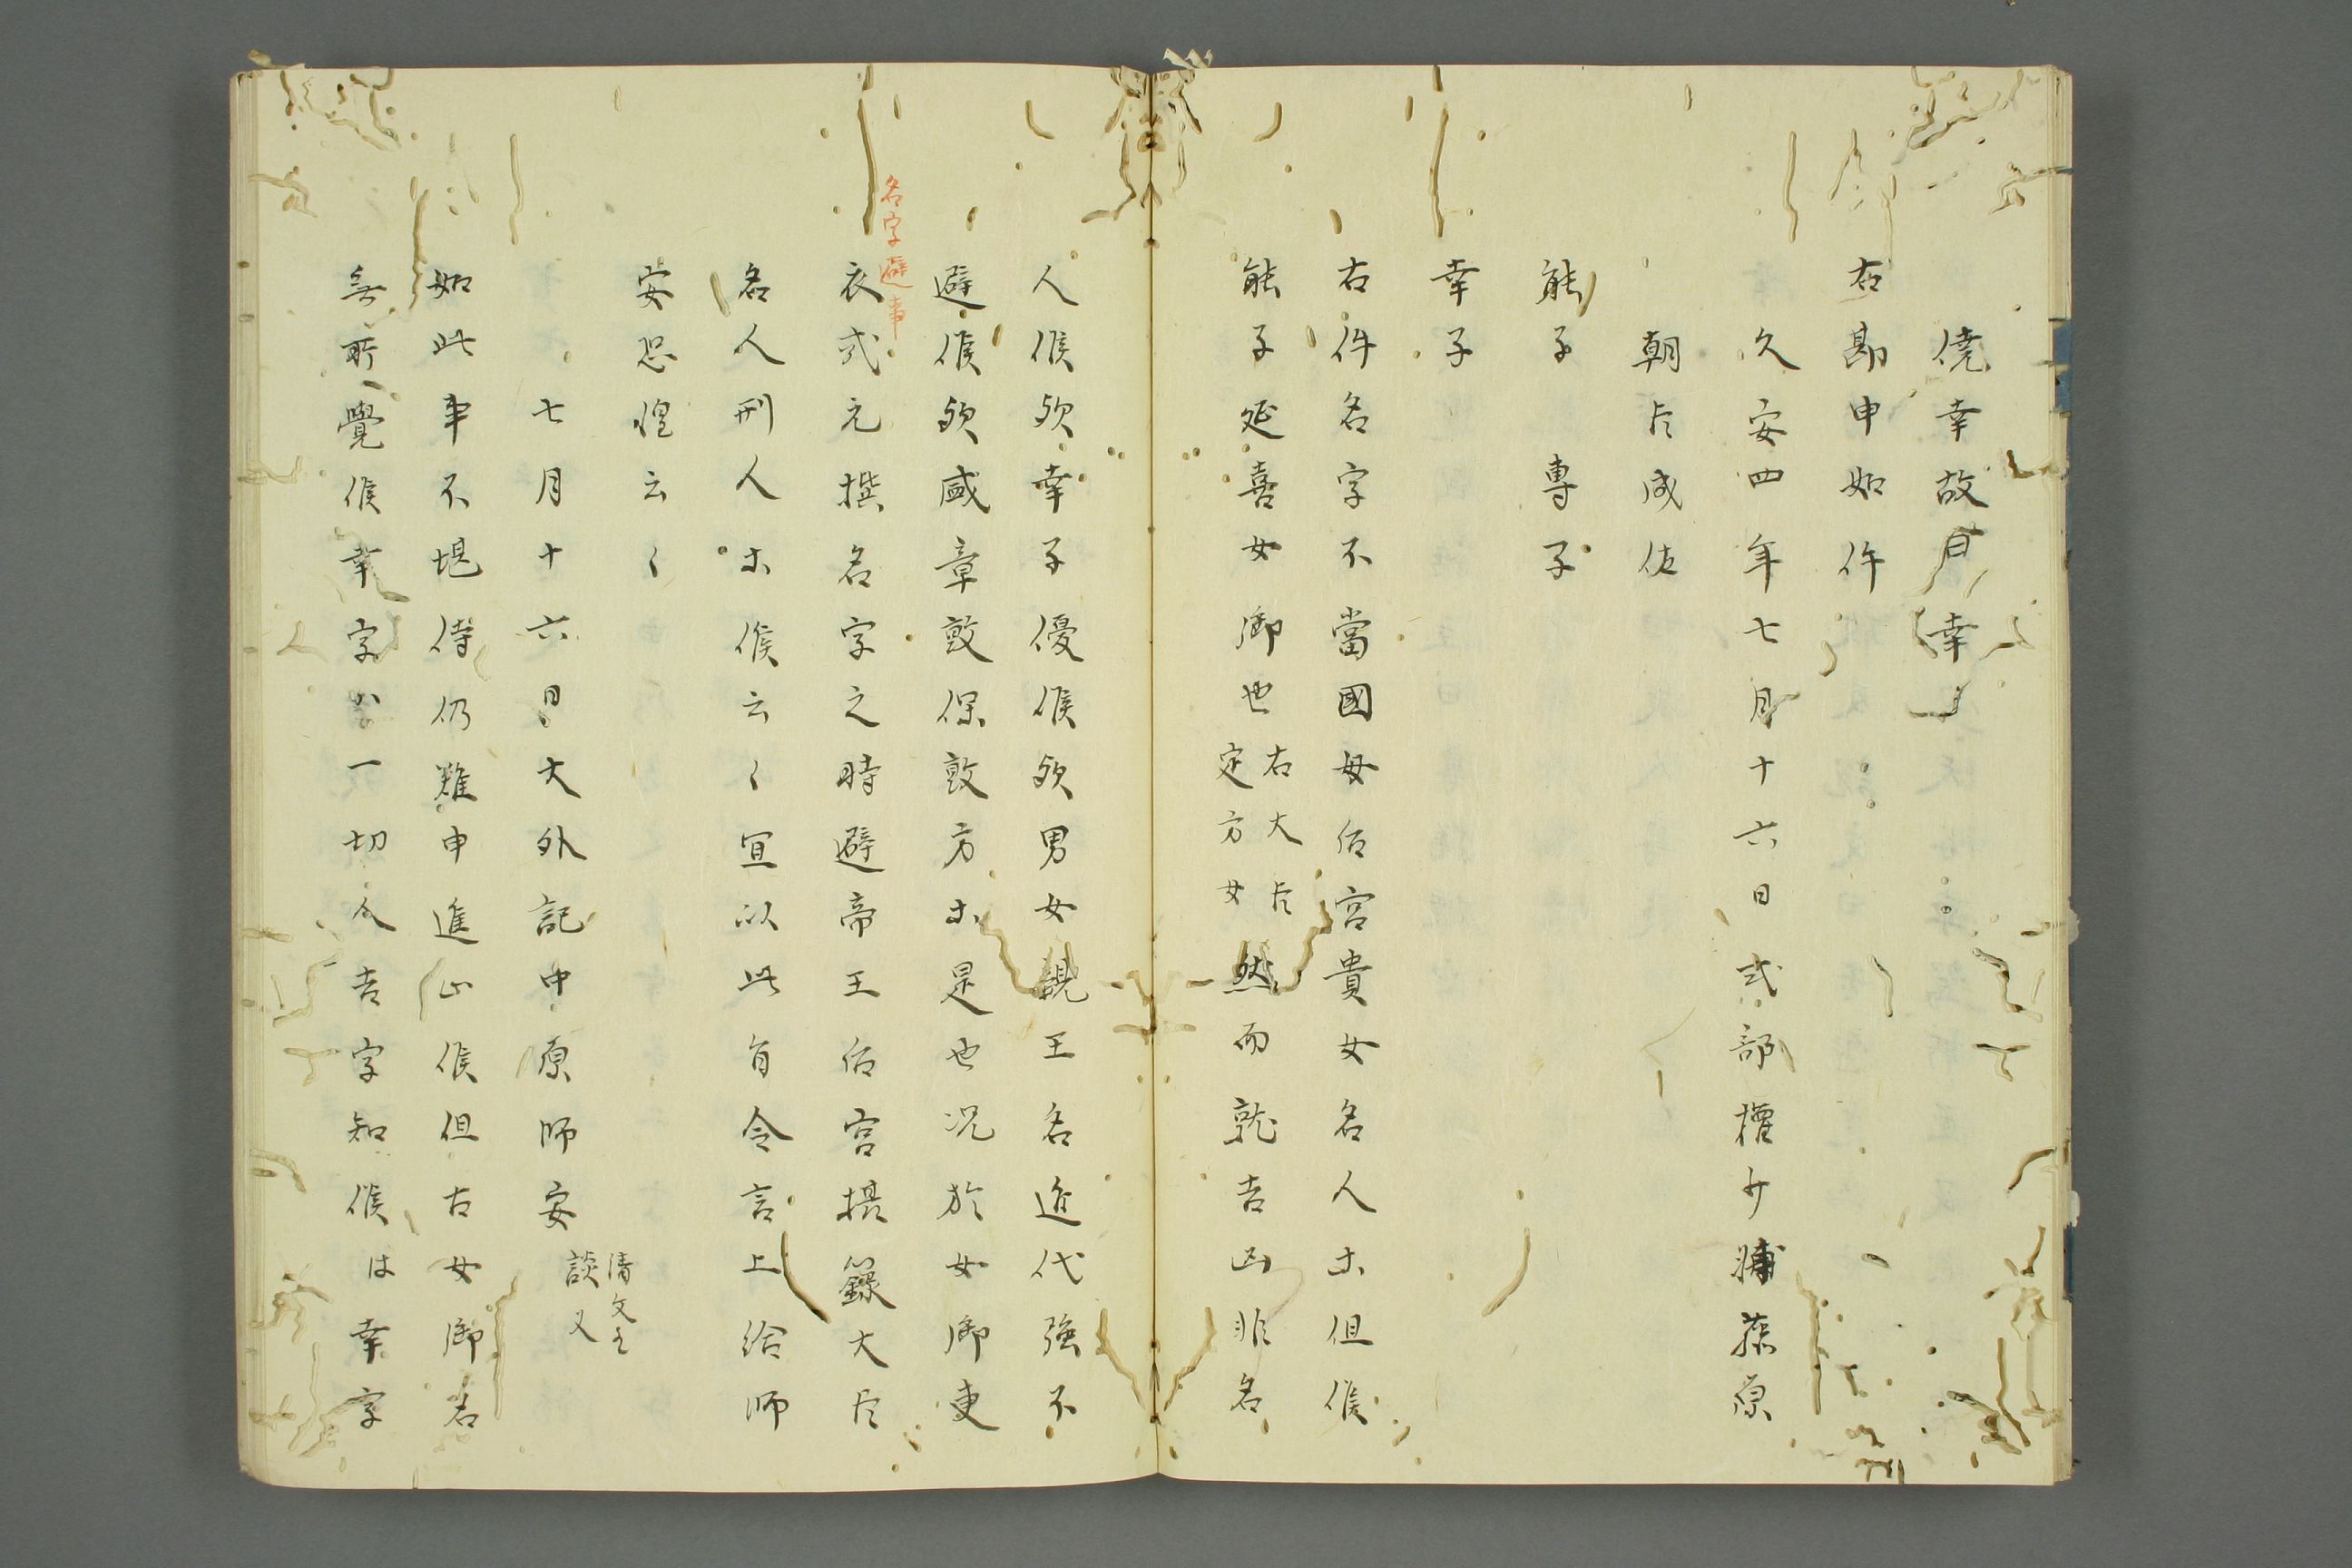 僥幸故曰幸
右勘申如件
久安四年七月十六日式部權少輔藤原
朝臣成佐
能子　專子
幸子
右件名字不當國母后宮貴女名人ホ但候
能子延喜女御也右大臣定方女然而就吉凶非名
人候欤幸子優候欤男女親王名近代強不
避候欤盛章敦保敦方ホ是也况於女御更
名字避事
衣式元撰名字之時避帝王后宮摂籙大臣
名人刑人ホ候云〻宜以此旨令言上給師
安恐惶云〻
七月十六日大外記中原師安
清文之
談又
如此事不堪侍仍難申進止候但古女御名
無所覺候幸字ハ一切人吉字知候は幸字